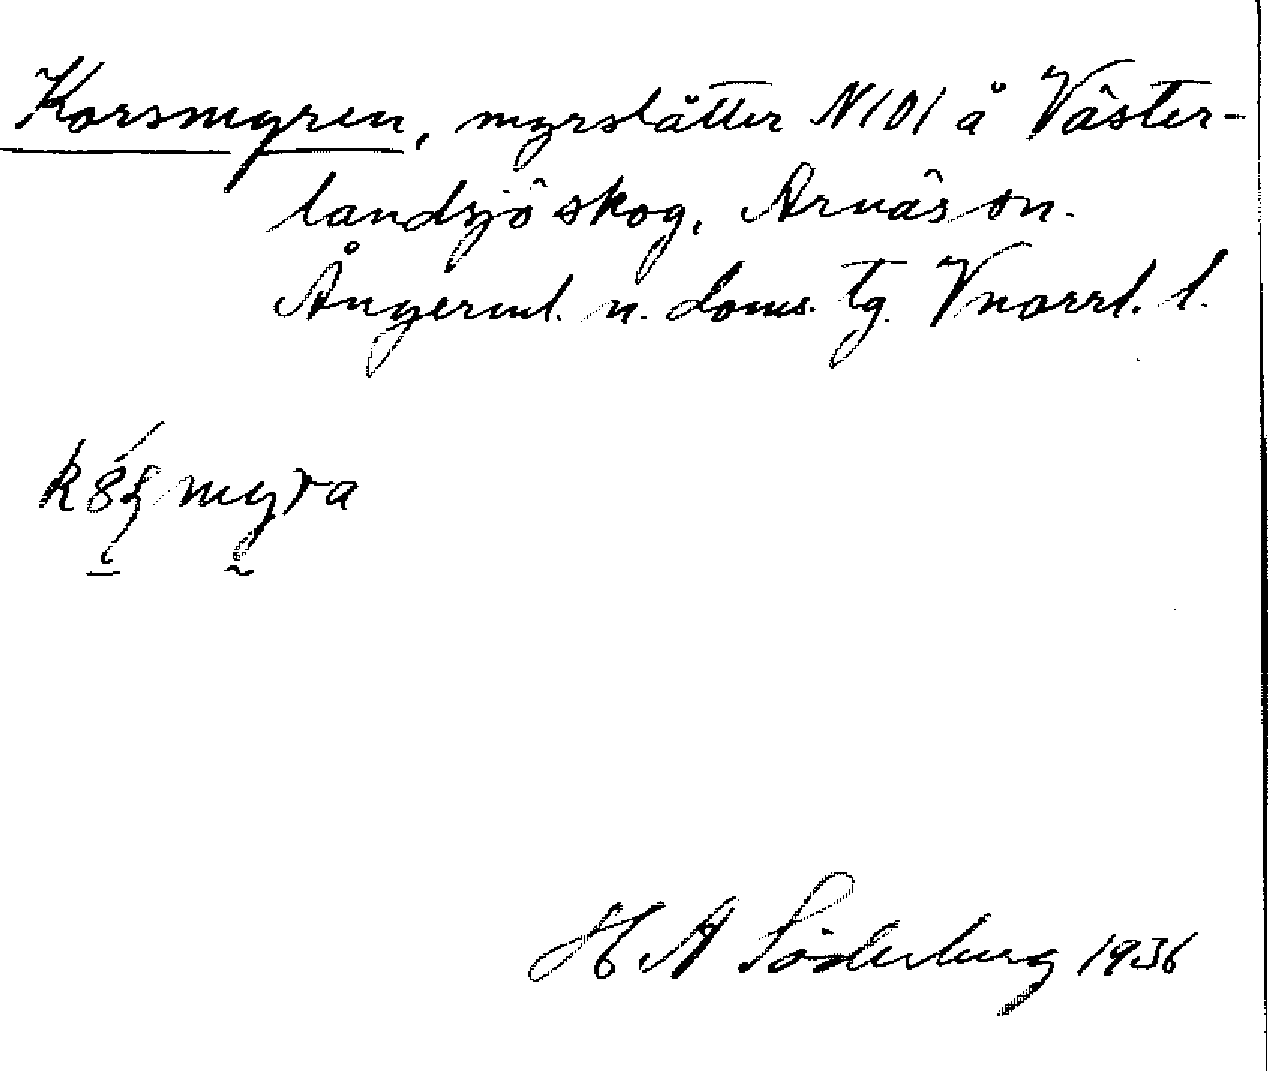 Korsmyren, myrslåtter N101 å Väster-
landsjö skog, Arnäs sn.
Ångerml. n. doms. tg. Vnorrl. l.
myra
H A Söderberg 1936